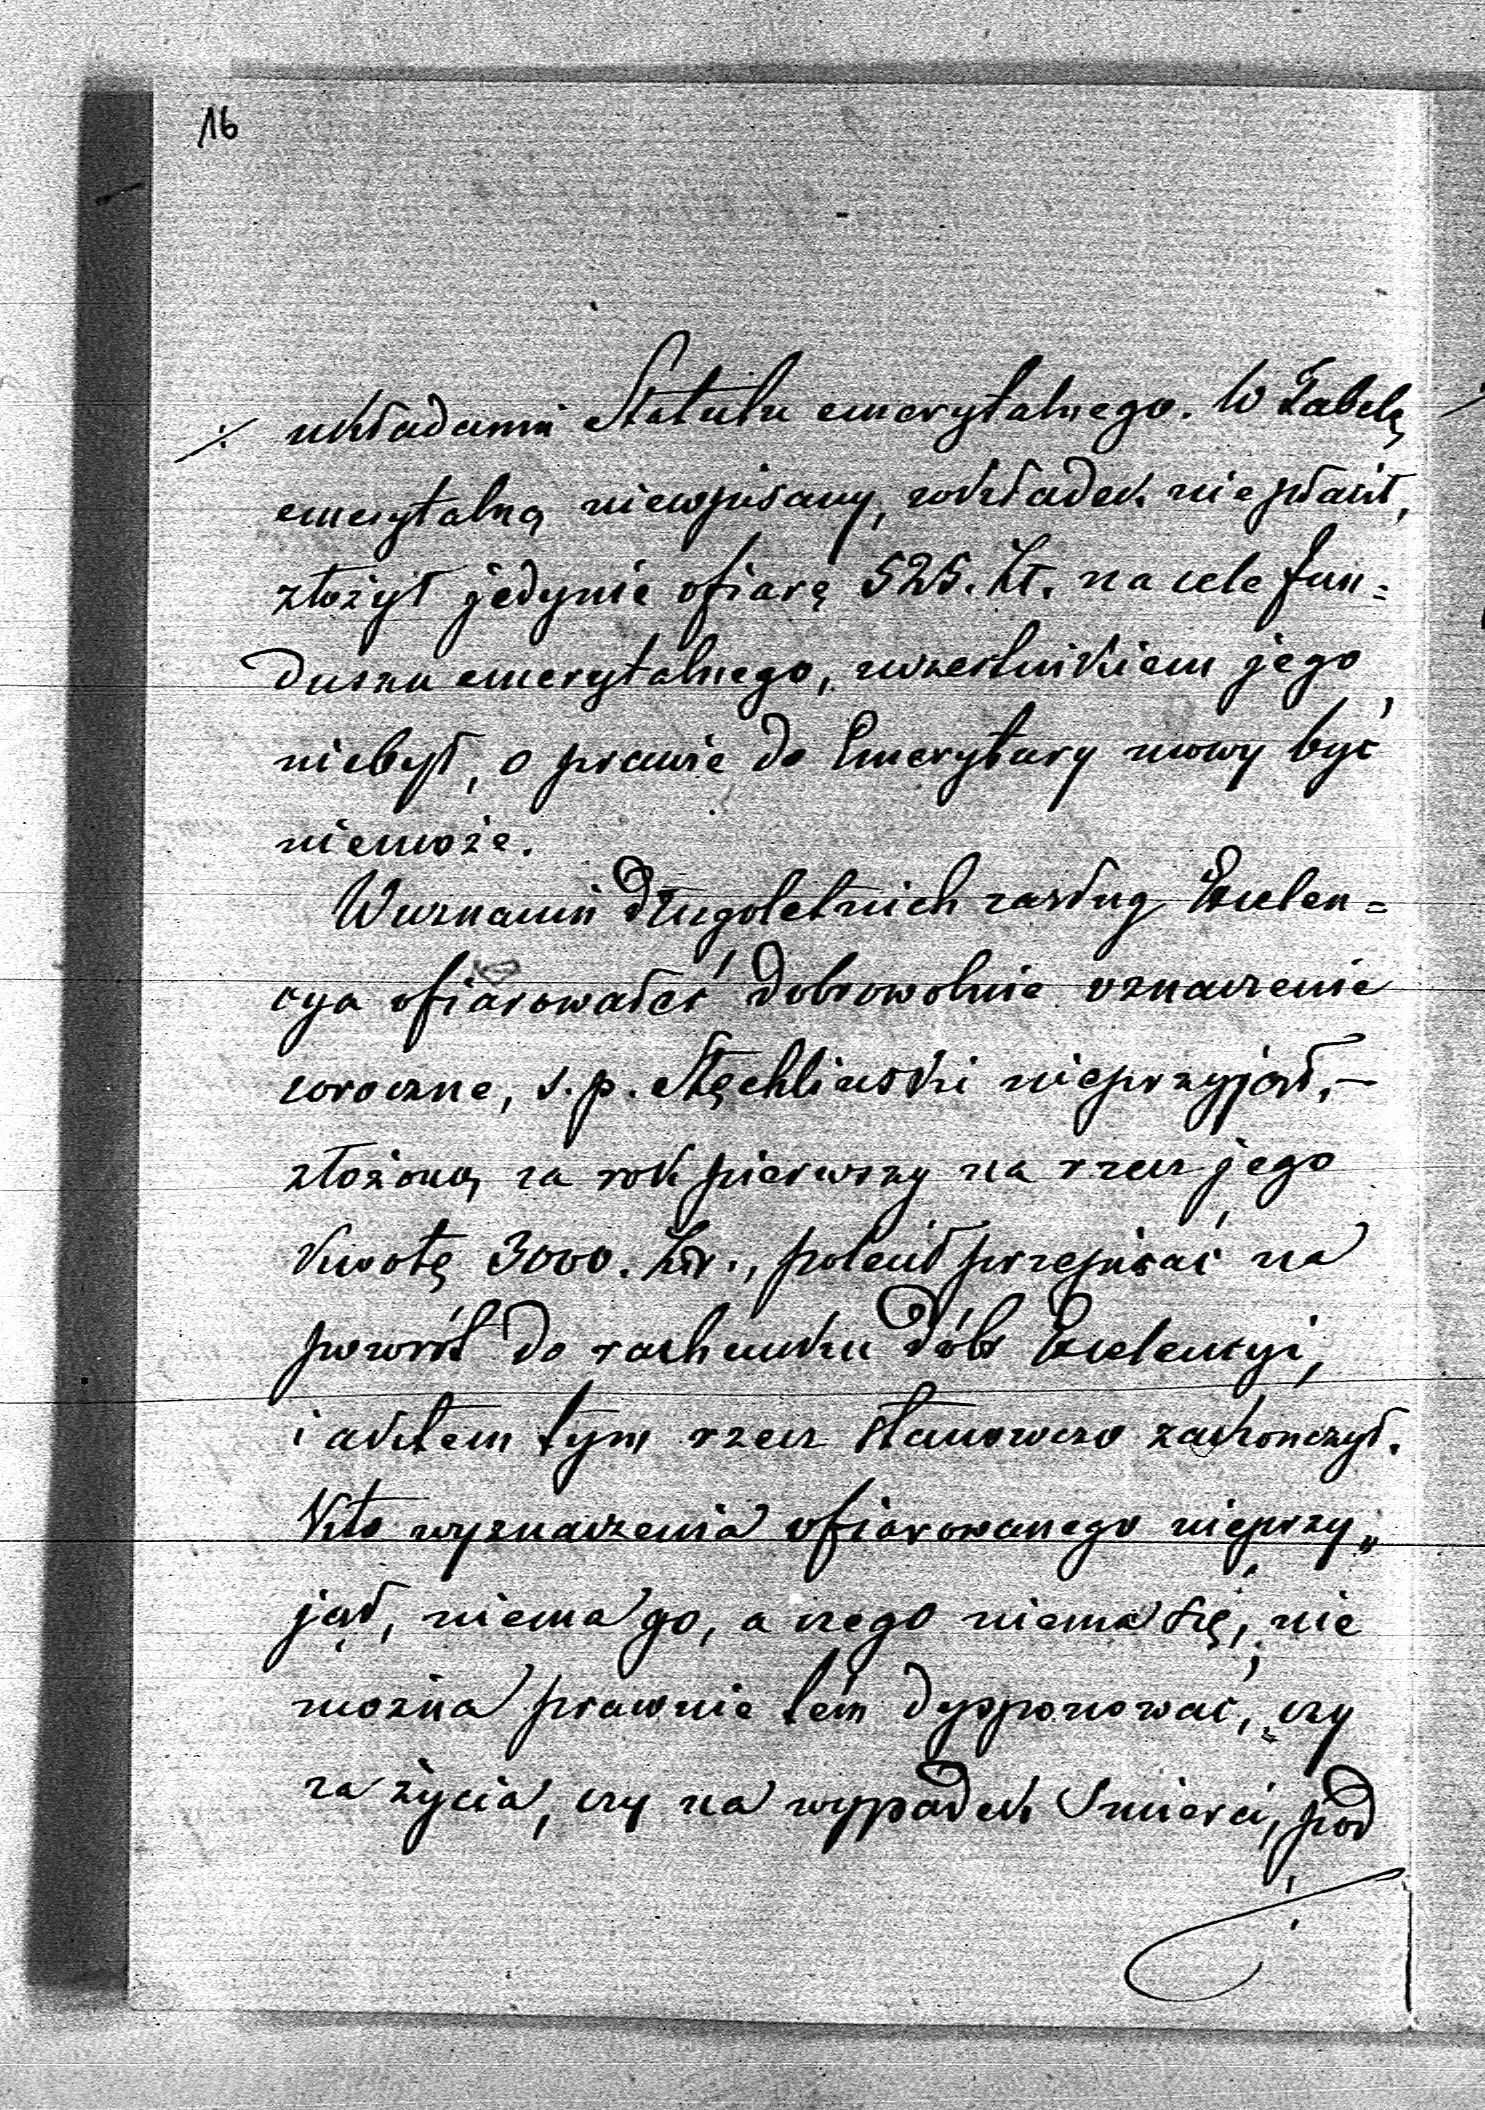 16
układaniu Statutu emerytalnego. W Tabelę
emerytalną niewpisany, wkładek niepłacił,
złożył jedynie ofiarę 525. Zł. na cele fun=
duszu emerytalnego, uczestnikiem jego
niebył, o prawie do Emerytury mowy być
niemoże.
W uznaniu długoletnich zasług Excelen=
cya ofiarowałeś dobrowolnie oznaczenie
coroczne, ś. p. Stęchlinski nieprzyjął, —
złożoną za rok pierwszy na rzecz jego
kwotę 3000. Złr., polecił przepisać na
powrót do rachunku dóbr Excelencyi,
i aktem tym rzecz stanowczo zakonczył.
Kto wyznaczenia ofiarowanego nieprzy„
jął, niema go, a czego niema się, nie
można prawnie tém dysponować, czy
za życia, czy na wypadek Smierci, pod